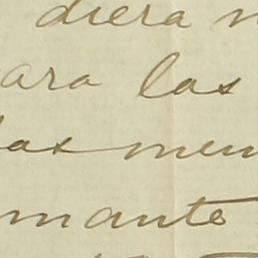 diera
para las
las men
mante